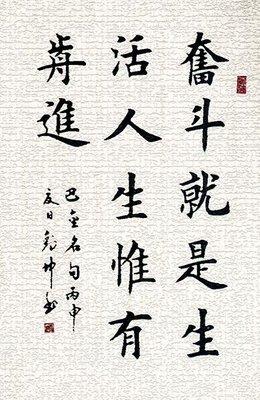 奮斗就是生
活人生惟有
歬進
巴金名句丙申
夏日